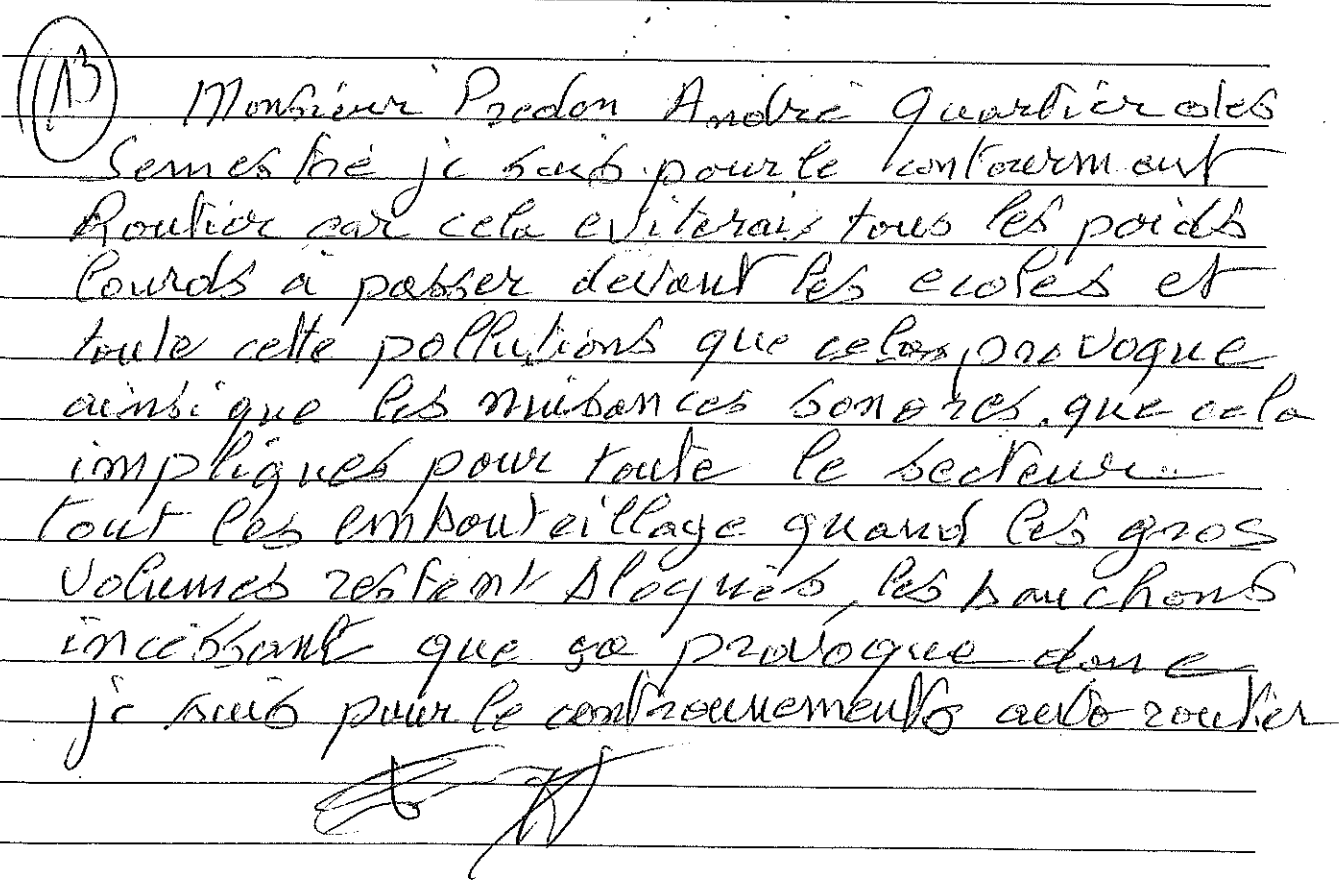 13
Monsieur Predon André quartier des
Semestre je suis pour le contourmant
Routier car cela eviterais tous les poids
lourds a passer devant les ecoles et
toute cette pollutions que cela provoque
ainsi que les nuisances sonores que cela
impliques pour toute le secteur
tout les embouteillage quand les gros
volumes restent bloqués, les bouchons
incéssant que ça provoque donc
je suis pour le autoroutier